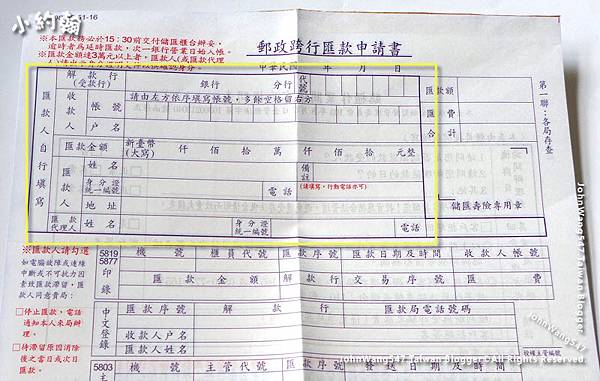 小約翰
51-16
※本匯款務必於15:30前交付儲匯櫃台辦妥,
逾時者為延時匯款,次一銀行營業日始入帳。
※匯款金額達3萬元以上者,匯款人(或匯款代理
郵政跨行匯款申請書
中華民國 年 月 日
第一聯:各局存查
匯款人自行填寫
解款行
(受款行)
銀行 分行
代號
收款人
帳號
請由左方依序填寫帳號,多餘空格留右方
戶名
匯款金額
新臺幣
(大寫)
仟 佰 拾 萬 仟 佰 拾 元整
匯款人
姓名
身分證
統一編號
地址
備註
電話
(請填寫,行動電話亦可)
匯款
代理人
姓名
身分證
統一編號
電話
匯款額
匯費
合計
儲匯壽險專用章
※匯款人請勾選
如電腦故障或連線
中斷或不可抗力因
素致匯款滯留,匯
款人同意貴局:
□停止匯款,電話
通知本人來局辦
理。
□待滯留原因消除
後之當日或次日
匯款。
5819
5877
印錄
機號 櫃員代號 匯款序號 匯款日期及時間 收款人帳號
匯款金額 解款行 交易序號 匯費
中文登錄
匯款序號 解款行 匯款局電話號碼
收款人戶名
匯款人姓名
5803
機號 主管代號 匯款序號 發送日期及時間
授權主管編號
JohnWang547 Taiwan Blogger
JohnWang547
JohnWang547 Taiwan Blogger©All Rights Reserved.